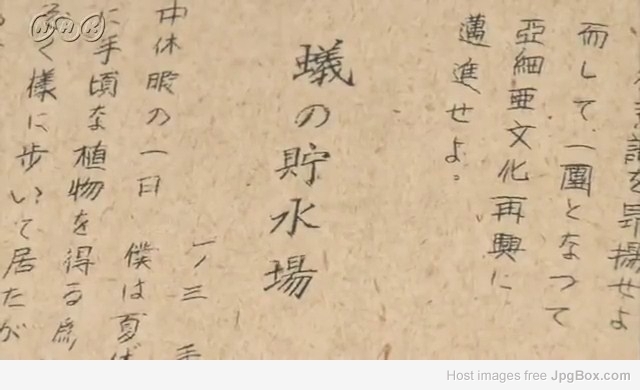 を昂揚せよ
而して、一團となつて
亞細亜文化再興に
邁進せよ。
蟻の貯水場
一ノ三
中休暇の一日 僕は夏
に手頃な植物を得る為
く様に歩いて居たが
NHK
Host images free JpgBox.com